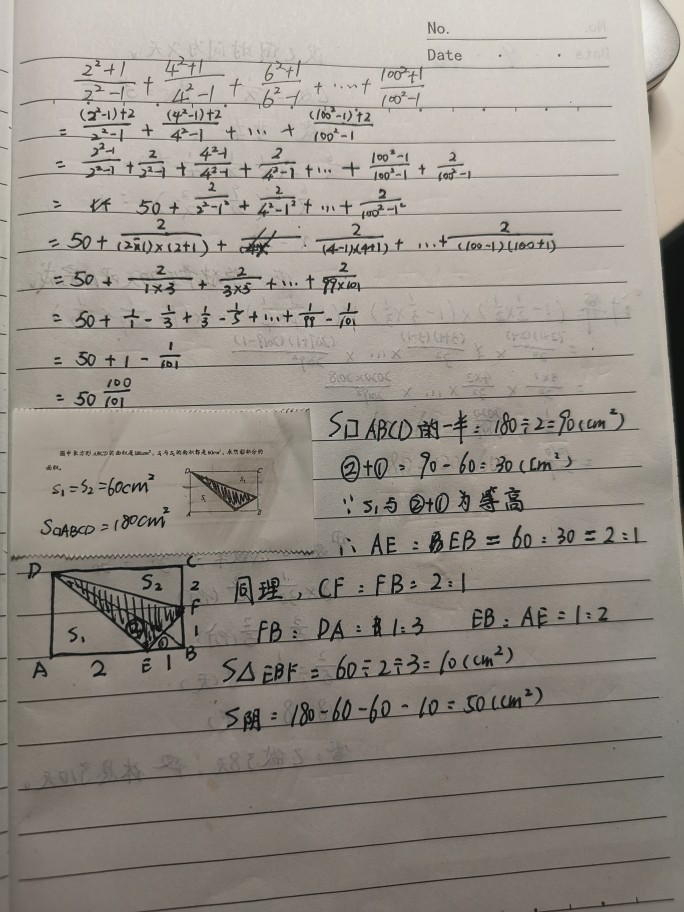 No.
Date
2²+1/2²-1 + 4²+1/4²-1 + 6²+1/6²-1 + ... + 100²+1/100²-1
= (2²-1)+2/2²-1 + (4²-1)+2/4²-1 + ... + (100²-1)+2/100²-1
= 2²-1/2²-1 + 2/2²-1 + 4²-1/4²-1 + 2/4²-1 + ... + 100²-1/100²-1 + 2/100²-1
= 50 + 2/2²-1² + 2/4²-1² + ... + 2/100²-1²
= 50 + 2/(2-1)×(2+1) + 2/(4-1)×(4+1) + ... + 2/(100-1)(100+1)
= 50 + 2/1×3 + 2/3×5 + ... + 2/99×101
= 50 + 1/1 - 1/3 + 1/3 - 1/5 + ... + 1/99 - 1/101
= 50 + 1 - 1/101
= 50 100/101
图中长方形ABCD的面积是180cm²,S₁与S₂的面积都是60cm²,求阴影部分的
面积。
S₁=S₂=60cm²
S□ABCD=180cm²
D C
S₂ 2
F
S₁ ② ① 1
A 2 E 1 B
S□ABCD的一半:180÷2=90(cm²)
②+①=90-60=30(cm²)
∵S₁与②+①为等高
∴AE:EB=60:30=2:1
同理,CF:FB=2:1
FB:DA=1:3 EB:AE=1:2
S△EBF=60÷2÷3=10(cm²)
S阴=180-60-60-10=50(cm²)